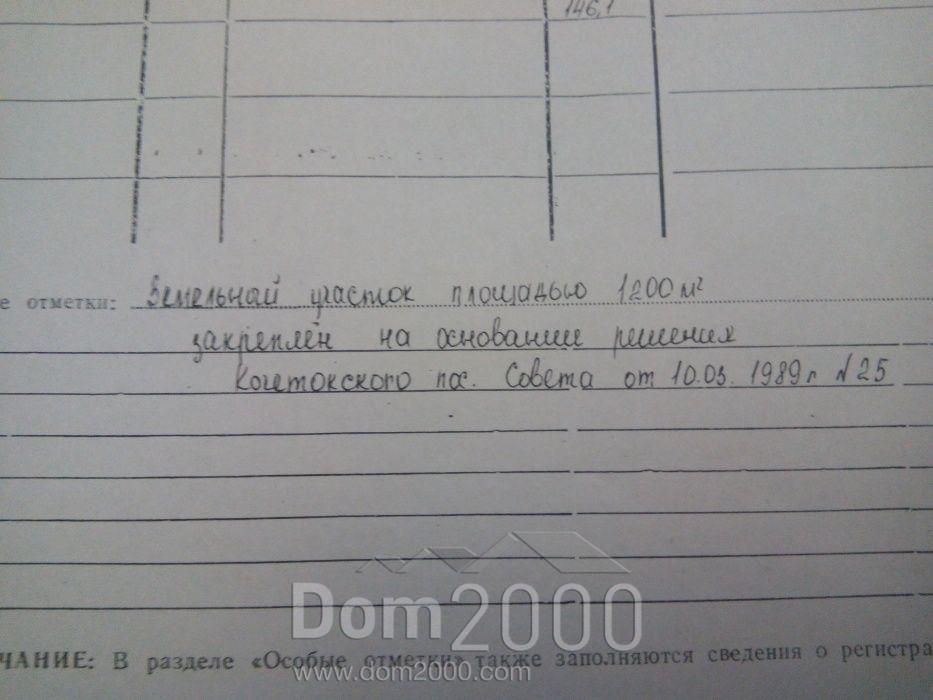 146,1
е отметки: Земельный участок площадью 1200 м²
закреплён на основании решения
Кочетокского пос. Совета от 10.03. 1989г N25
Dom2000
ЧАНИЕ: В разделе «Особые отметки» также заполняются сведения о регистра
www.dom2000.com